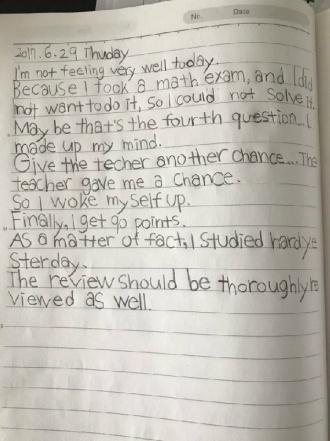 No.
Date
2017.6.29 Thuday
I'm not feeling very well today.
Because I took a math exam, and I did
not want to do It, So I could not Solve it.
May be that's the fourth question... I
made up my mind.
Give the techer another chance.... The
teacher gave me a Chance.
So I woke my self up.
Finally, I get 90 points.
As a matter of fact, I studied hard ye
Sterday.
The review should be thoroughly re
viewed as well.